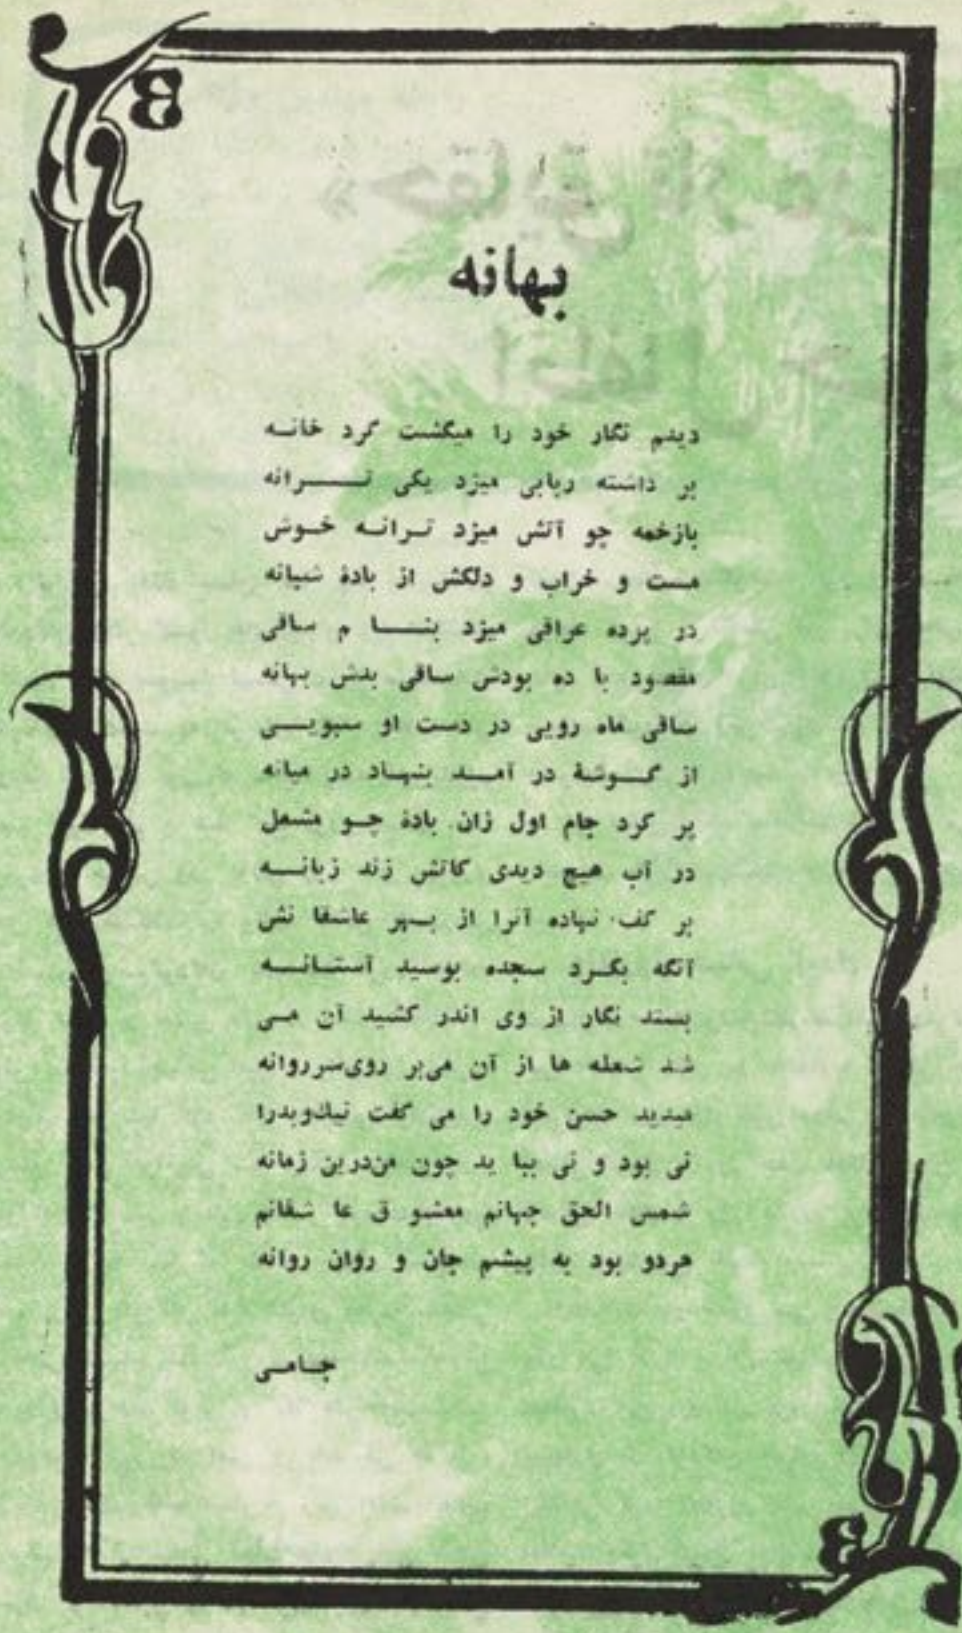 بهانه
دیدم نگار خود را میگشت گرد خانه
بر داشته ربابی میزد یکی ترانه
بازخمه چو آتش میزد ترانه خوش
مست و خراب و دلکش از بادهٔ شبانه
در پرده عراقی میزد بنا م ساقی
مقصود با ده بودش ساقی بدش بهانه
ساقی ماه رویی در دست او سبویی
از گوشهٔ در آمد بنهاد در میانه
پر کرد جام اول زان بادهٔ چو مشعل
در آب هیچ دیدی کاتش زند زبانه
بر کف نهاده آنرا از بهر عاشقا نش
آنگه بکرد سجده بوسید آستانه
بستد نگار از وی اندر کشید آن می
شد شعله ها از آن می‌بر روی‌سرروانه
میدید حسن خود را می گفت نیك‌وبدرا
نی بود و نی بیا ید چون من‌درین زمانه
شمس الحق جهانم معشو ق عا شقانم
هردو بود به پیشم جان و روان روانه
جامی